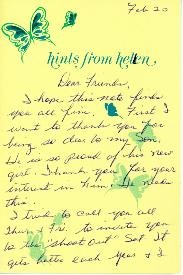 Feb 20
hints from hellen,
Dear Friends,
I hope this note finds
you all fine, First I
want to thank you for
being so dear to my son.
He is so proud of his new
girl. Thank you for your
interest in him. He needs
this.
I tried to call you all
Thurs, Fri. to invite you
to the "Shoot Out" Sat. It
gets better each year & I